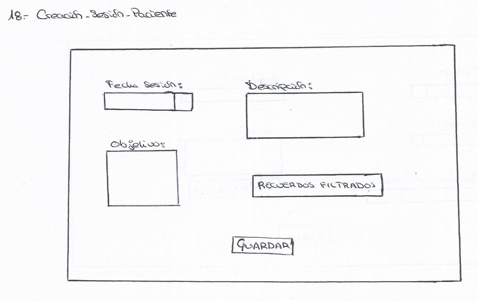 18.- Creación-Sesión-Paciente
Fecha Sesión:
Descripción:
Objetivo:
RECUERDOS FILTRADOS
GUARDAR